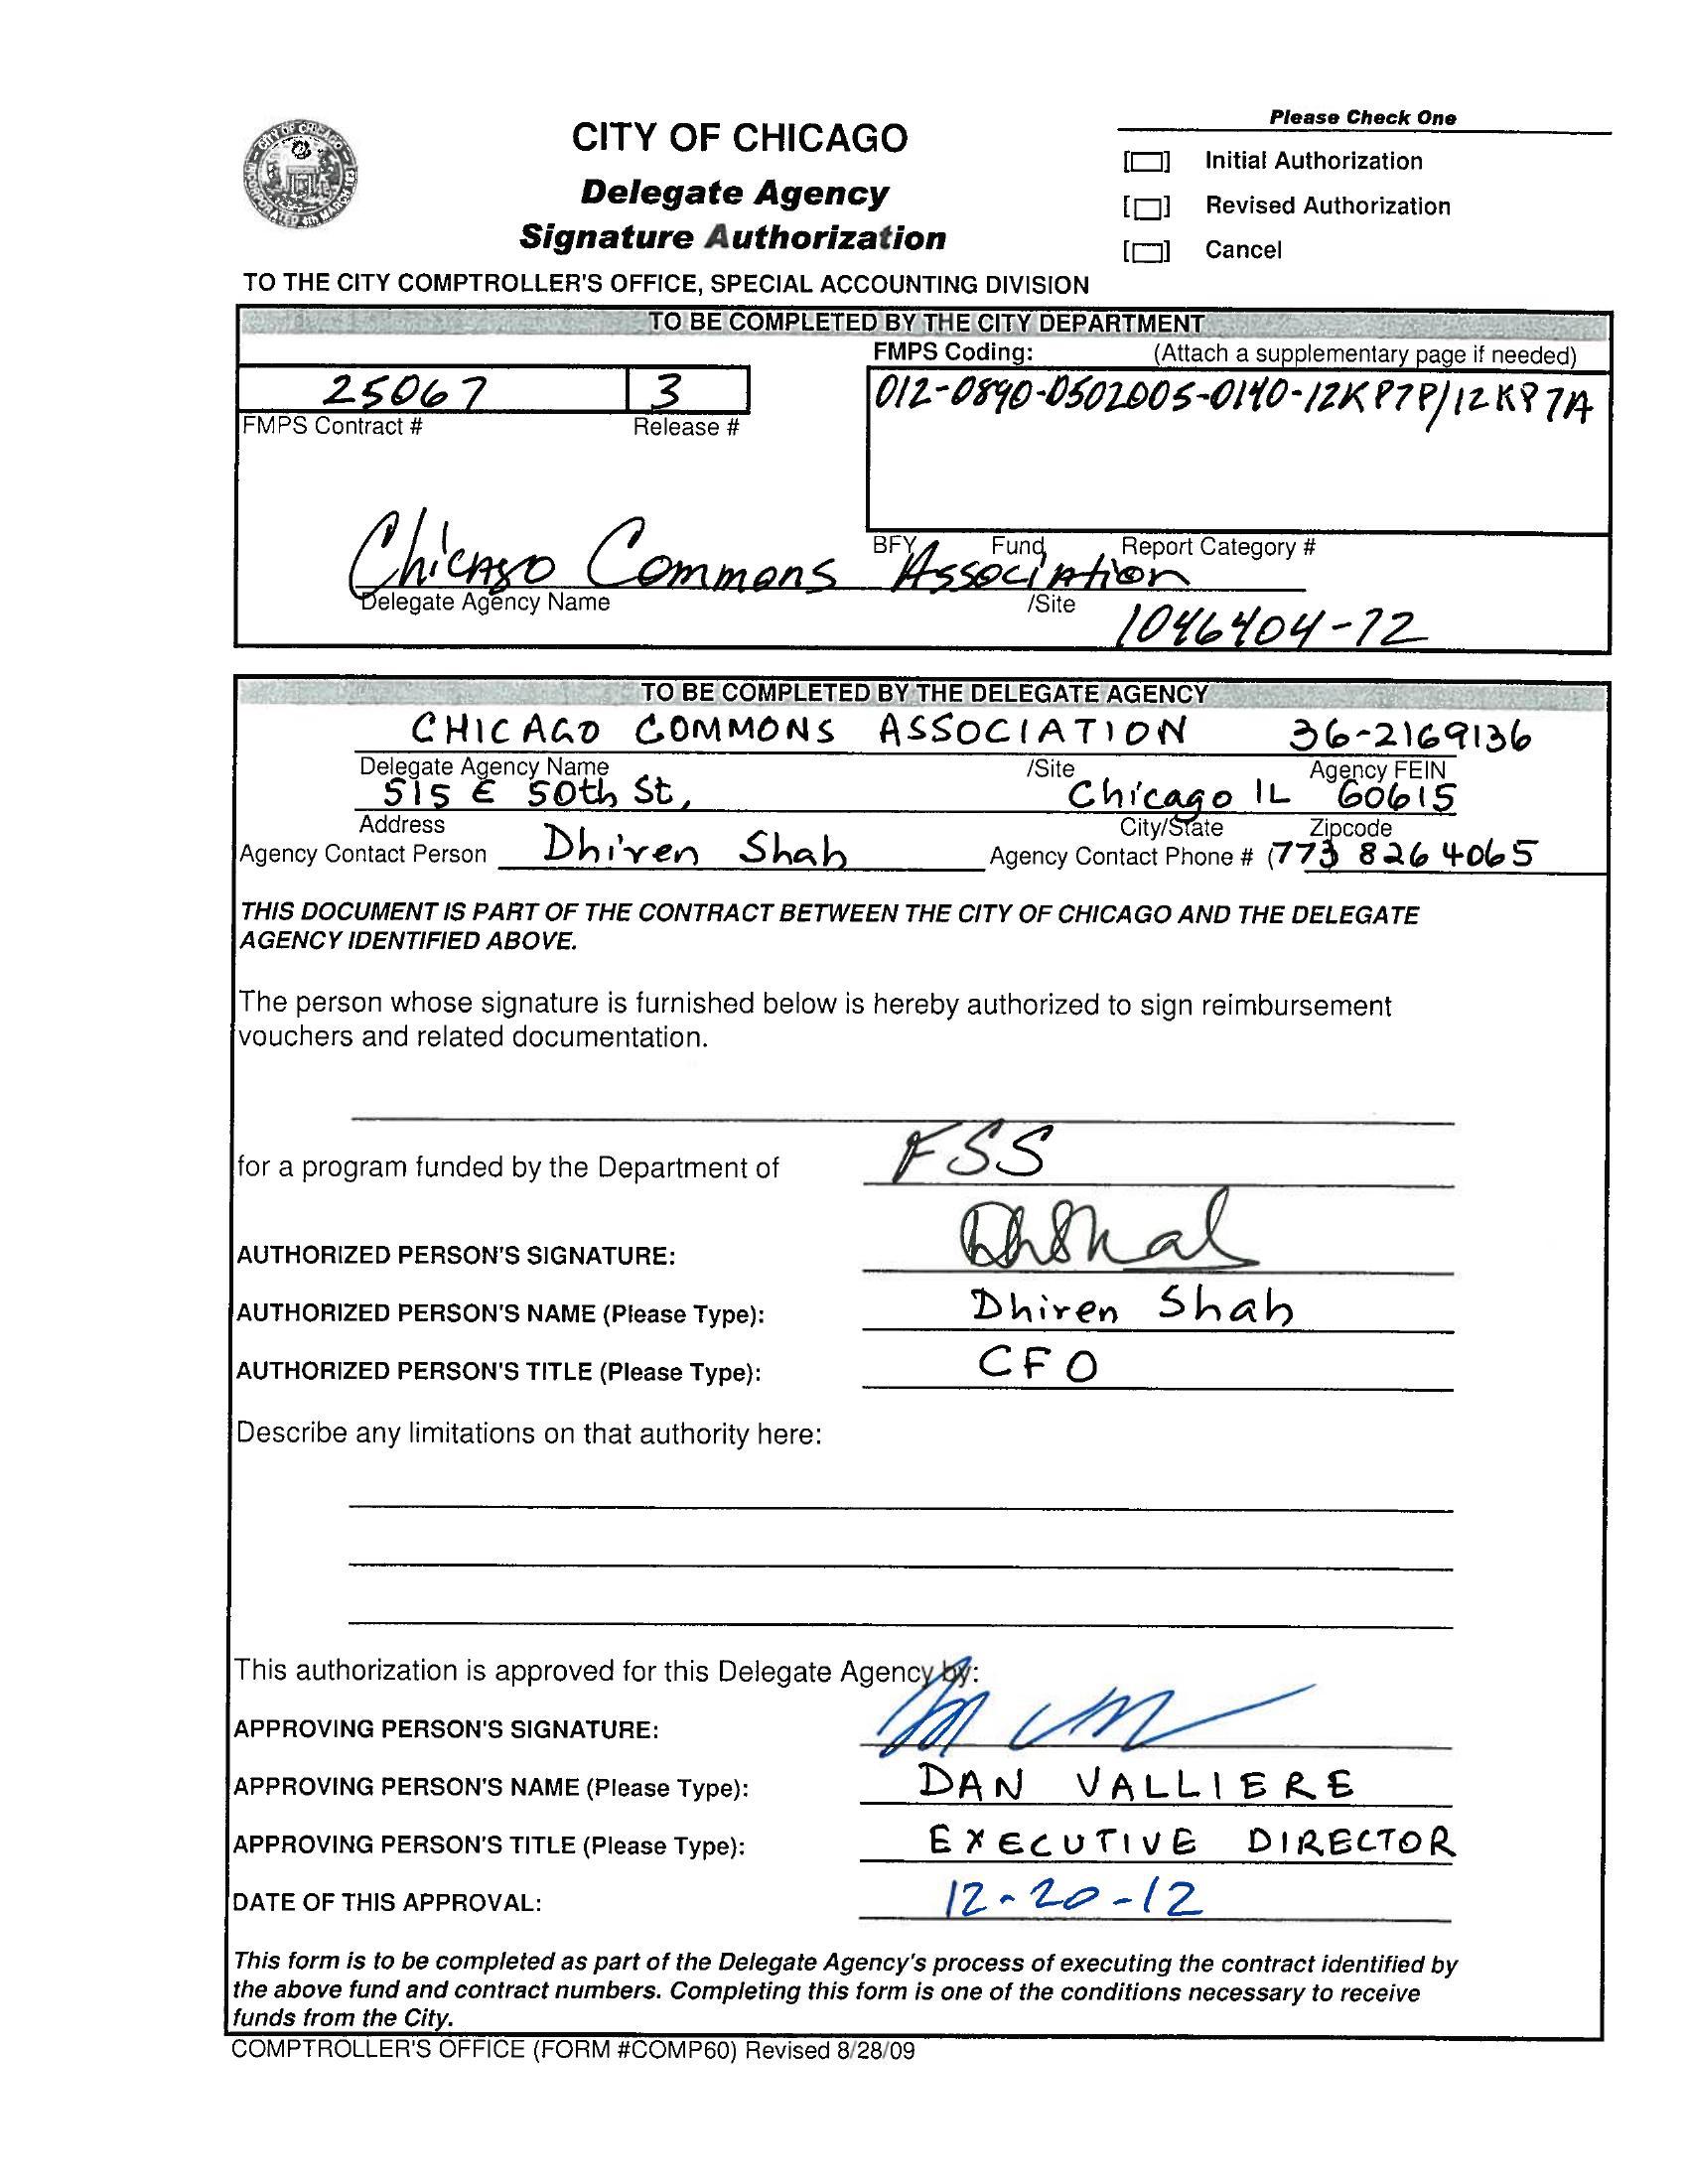 CITY OF CHICAGO
Delegate Agency
Signature Authorization
Please Check One
[ ] Initial Authorization
[ ] Revised Authorization
[ ] Cancel
TO THE CITY COMPTROLLER'S OFFICE, SPECIAL ACCOUNTING DIVISION
TO BE COMPLETED BY THE CITY DEPARTMENT
FMPS Coding: (Attach a supplementary page if needed)
25067 3 012-0890-0502005-0140-12KP7P/12KP7A
FMPS Contract # Release #
BFY Fund Report Category #
Chicago Commons Association
Delegate Agency Name /Site
1046404-72
TO BE COMPLETED BY THE DELEGATE AGENCY
CHICAGO COMMONS ASSOCIATION 36-2169136
Delegate Agency Name /Site Agency FEIN
515 E 50th St, Chicago IL 60615
Address City/State Zipcode
Agency Contact Person Dhiren Shah Agency Contact Phone # (773 826 4065
THIS DOCUMENT IS PART OF THE CONTRACT BETWEEN THE CITY OF CHICAGO AND THE DELEGATE
AGENCY IDENTIFIED ABOVE.
The person whose signature is furnished below is hereby authorized to sign reimbursement
vouchers and related documentation.
for a program funded by the Department of FSS
AUTHORIZED PERSON'S SIGNATURE:
AUTHORIZED PERSON'S NAME (Please Type): Dhiren Shah
AUTHORIZED PERSON'S TITLE (Please Type): CFO
Describe any limitations on that authority here:
This authorization is approved for this Delegate Agency by:
APPROVING PERSON'S SIGNATURE:
APPROVING PERSON'S NAME (Please Type): DAN VALLIERE
APPROVING PERSON'S TITLE (Please Type): EXECUTIVE DIRECTOR
DATE OF THIS APPROVAL: 12-20-12
This form is to be completed as part of the Delegate Agency's process of executing the contract identified by
the above fund and contract numbers. Completing this form is one of the conditions necessary to receive
funds from the City.
COMPTROLLER'S OFFICE (FORM #COMP60) Revised 8/28/09